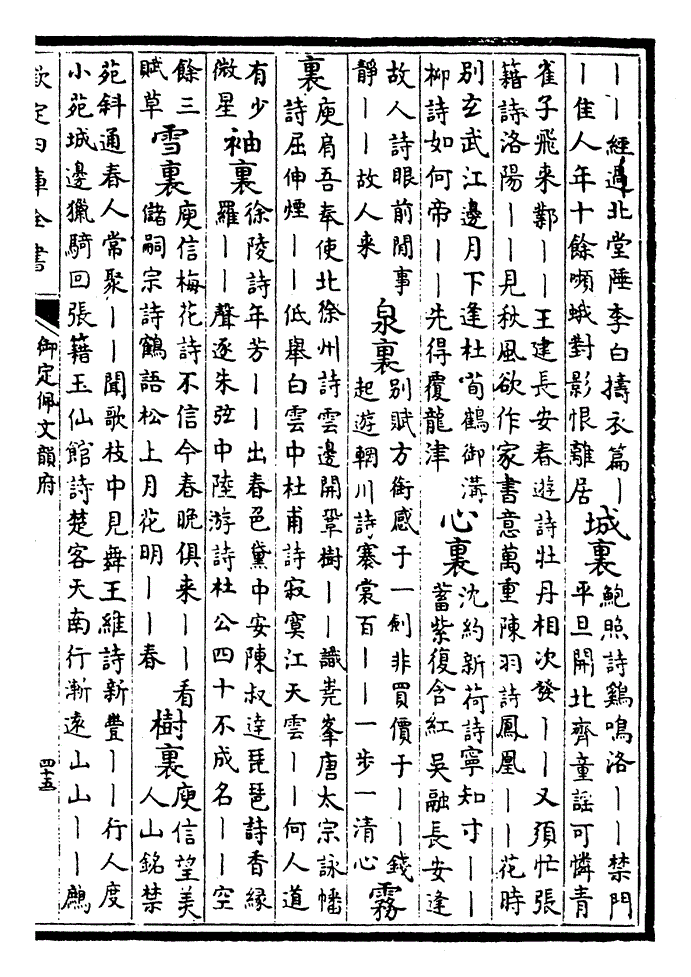 丨丨經過北堂陲李白擣衣篇丨
丨佳人年十餘嚬蛾對影恨離居
城裏
鮑照詩鷄鳴洛丨丨禁門
平旦開北齊童謡可憐青
雀子飛来鄴丨丨王建長安春遊詩牡丹相次發丨丨又須忙張
籍詩洛陽丨丨見秋風欲作家書意萬重陳羽詩鳳凰丨丨花時
别玄武江邊月下逢杜荀鶴御溝
柳詩如何帝丨丨先得覆龍津
心裏
沈約新荷詩寧知寸丨丨
蓄紫復含紅吳融長安逢
故人詩眼前閒事
靜丨丨故人来
泉裏
别賦方銜感于一劍非買價于丨丨錢
起遊輞川詩褰裳百丨丨一步一清心
霧
裏
庾肩吾奉使北徐州詩雲邊開鞏樹丨丨識嶤峯唐太宗詠幡
詩屈伸煙丨丨低舉白雲中杜甫詩寂寞江天雲丨丨何人道
有少
微星
袖裏
徐陵詩年芳丨丨出春色黛中安陳叔逹琵琶詩香縁
羅丨丨聲逐朱弦中陸游詩杜公四十不成名丨丨空
餘三
賦草
雪裏
庾信梅花詩不信今春晚俱来丨丨看
儲嗣宗詩鶴語松上月花明丨丨春
樹裏
庾信望美
人山銘禁
苑斜通春人常聚丨丨聞歌枝中見舞王維詩新豐丨丨行人度
小苑城邊獵騎回張籍玉仙館詩楚客天南行漸遠山山丨丨鷓
欽定四庫全書
御定佩文韻府
四十五